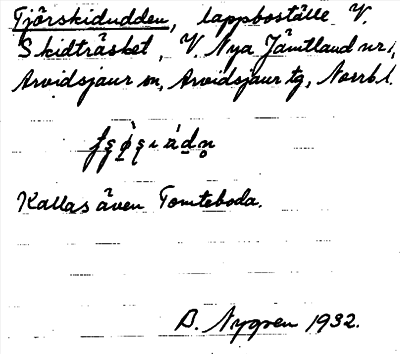 Tjörskidudden, lappboställe V.
Skidträsket, V. Nya Jämtland nr 1,
Arvidsjaur sn, Arvidsjaur tg, Norrb. l.
Kallas även Tomteboda.
B. Nygren 1932.